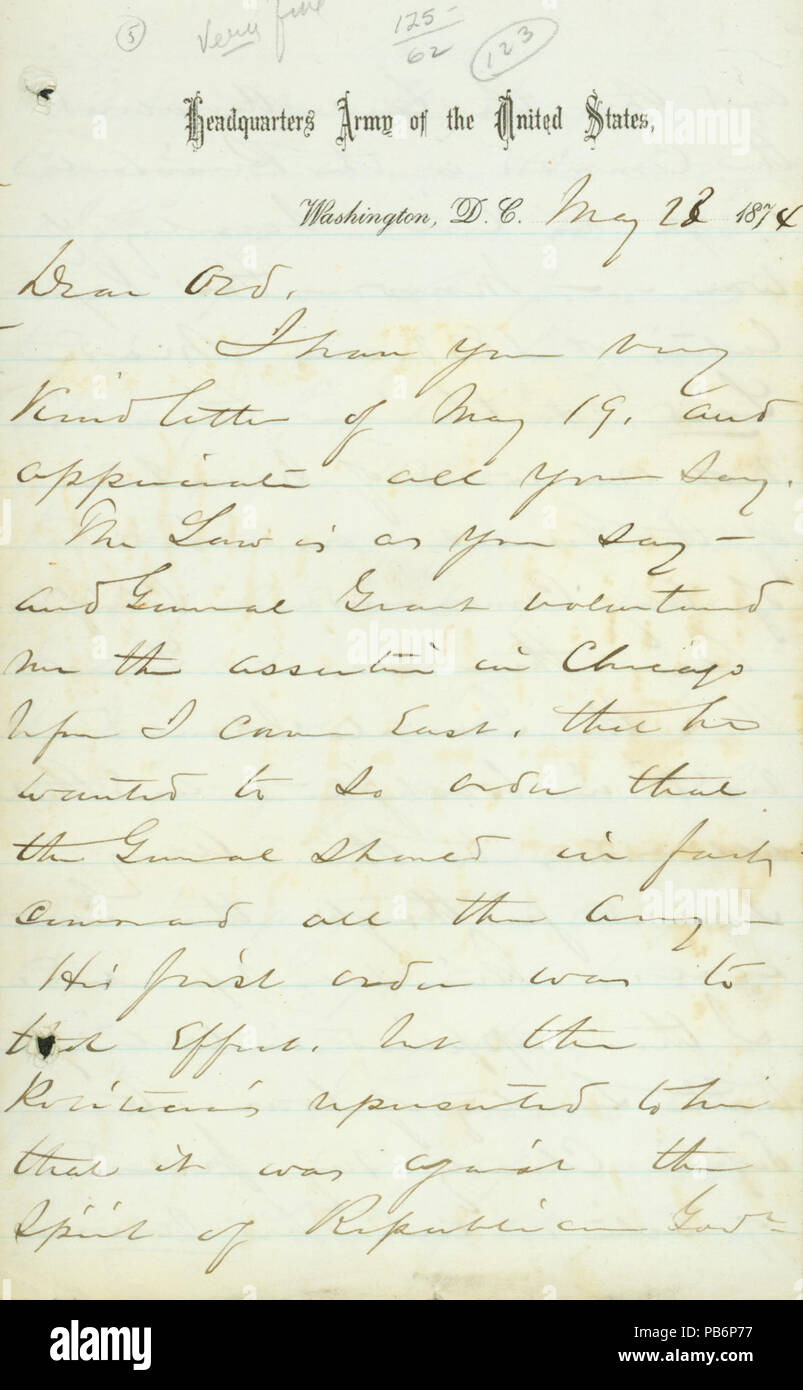 5 Very fine 125 62 123
Headquarters Army of the United States,
Washington, D. C. May 23 1874
Dear Ord.
I have your very
Kind letter of May 19. and
appreciate all you say.
The Law is as you say -
and General Grant volunteered
me the assertion in Chicago
before I came East, that he
wanted to so order that
the General should in fact
command all the Army -
His first order was to
that Effect, but the
Politicians represented to him
that it was against the
Spirit of Republican Govt
alamy
alamy
Image ID: PB6P77
www.alamy.com